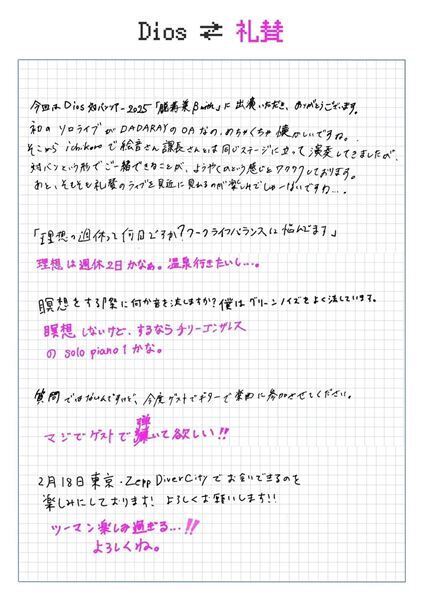 Dios ⇄ 礼賛
今回はDios対バンツアー2025「脱毒巣βwith」に出演いただき、ありがとうございます。
初のソロライブがDADARAYのOAなの、めちゃくちゃ懐かしいですね。
そこからichikoroで絵音さん課長さんとは同じステージに立って演奏してきましたが、
対バンという形でご一緒できることが、ようやくかという感じとワクワクしております。
あと、そもそも礼賛のライブを身近に見れるのが楽しみでしょーがないですわ…。
「理想の週休って何日ですか？ワークライフバランスに悩んでます」
理想は週休2日かなぁ。温泉行きたいし…。
瞑想をする際に何か音を流しますか？僕はグリーンノイズをよく流しています。
瞑想しないけど、するならチリーゴンザレス
のsolo piano 1かな。
質問ではないんですけど、今度ゲストでギターで楽曲に参加させてください。
マジでゲストで弾いて欲しい!!
2月18日東京・Zepp DiverCityでお会いできるのを
楽しみにしております! よろしくお願いします!!
ツーマン楽しみ過ぎる…!!
よろしくね。